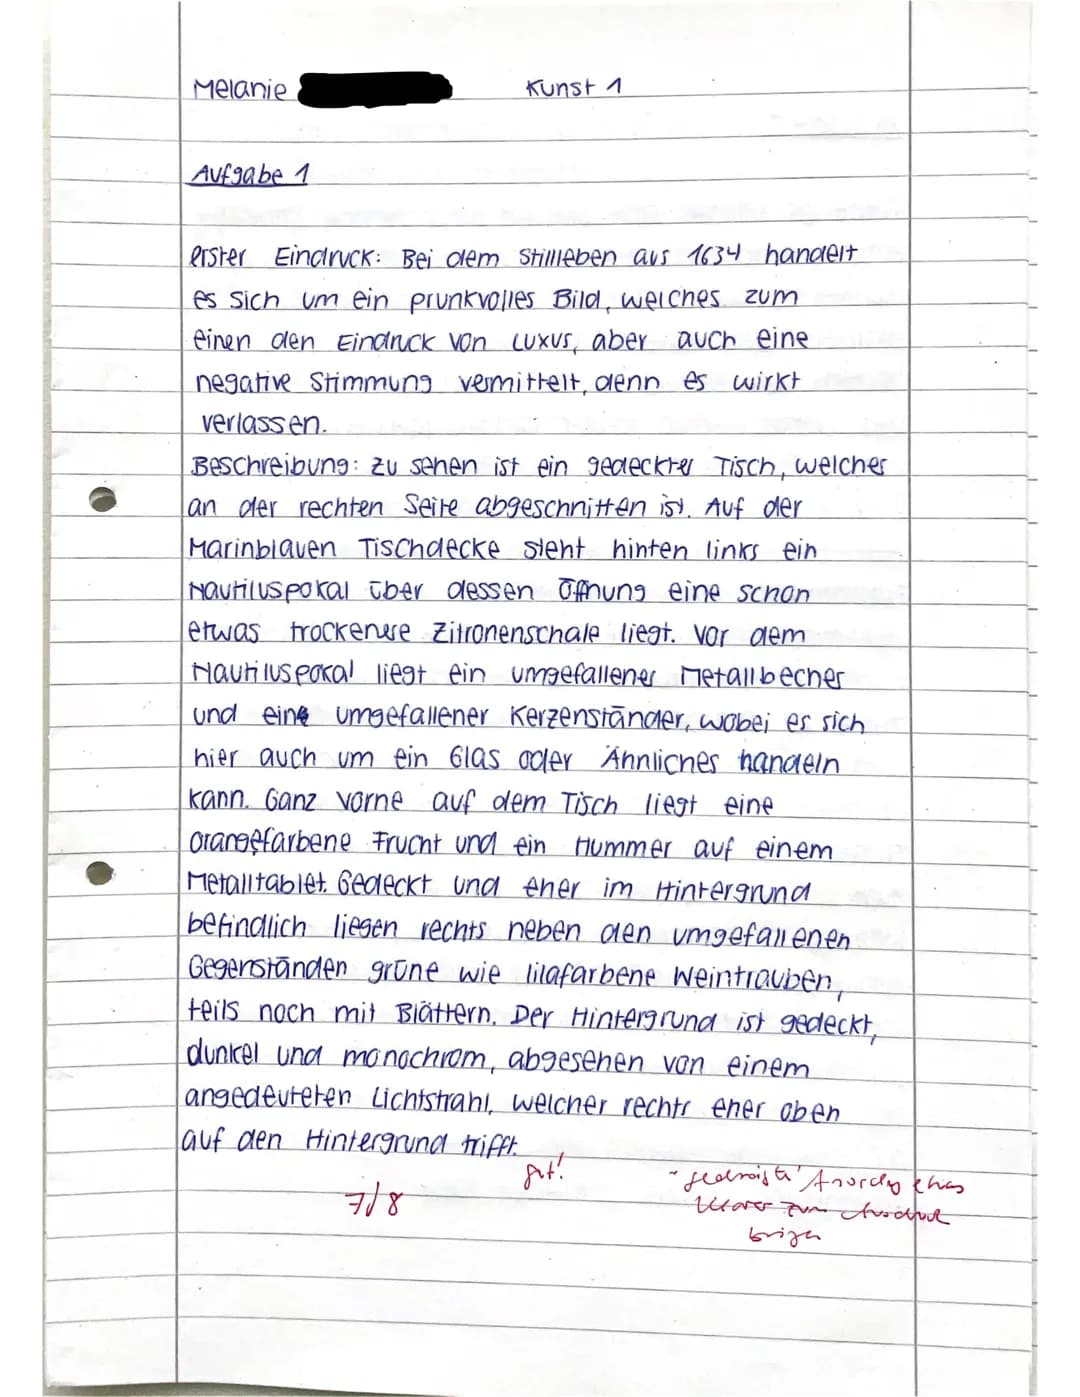 Melanie Kunst 1
Aufgabe 1
erster Eindruck: Bei dem Stillleben aus 1634 handelt
es sich um ein prunkvolles Bild, welches zum
einen den Eindruck von Luxus, aber auch eine
negative Stimmung vermittelt, denn es wirkt
verlassen.
Beschreibung: zu sehen ist ein gedeckter Tisch, welcher
an der rechten Seite abgeschnitten ist. Auf der
Marinblauen Tischdecke steht hinten links ein
Nautiluspokal über dessen Öffnung eine schon
etwas trockenere Zitronenschale liegt. Vor dem
Nautiluspokal liegt ein umgefallener Metallbecher
und eine umgefallener Kerzenständer, wobei es sich
hier auch um ein Glas oder Ähnliches handeln
kann. Ganz vorne auf dem Tisch liegt eine
orangefarbene Frucht und ein Hummer auf einem
Metalltablet. Gedeckt und eher im Hintergrund
befindlich liegen rechts neben den umgefallenen
Gegenständen grüne wie lilafarbene Weintrauben,
teils noch mit Blättern. Der Hintergrund ist gedeckt,
dunkel und monochrom, abgesehen von einem
angedeuteten Lichtstrahl, welcher rechts eher oben
auf den Hintergrund trifft.
gut!
7/8
- Anordng etwas
klarer zum Ausdruck
bringen